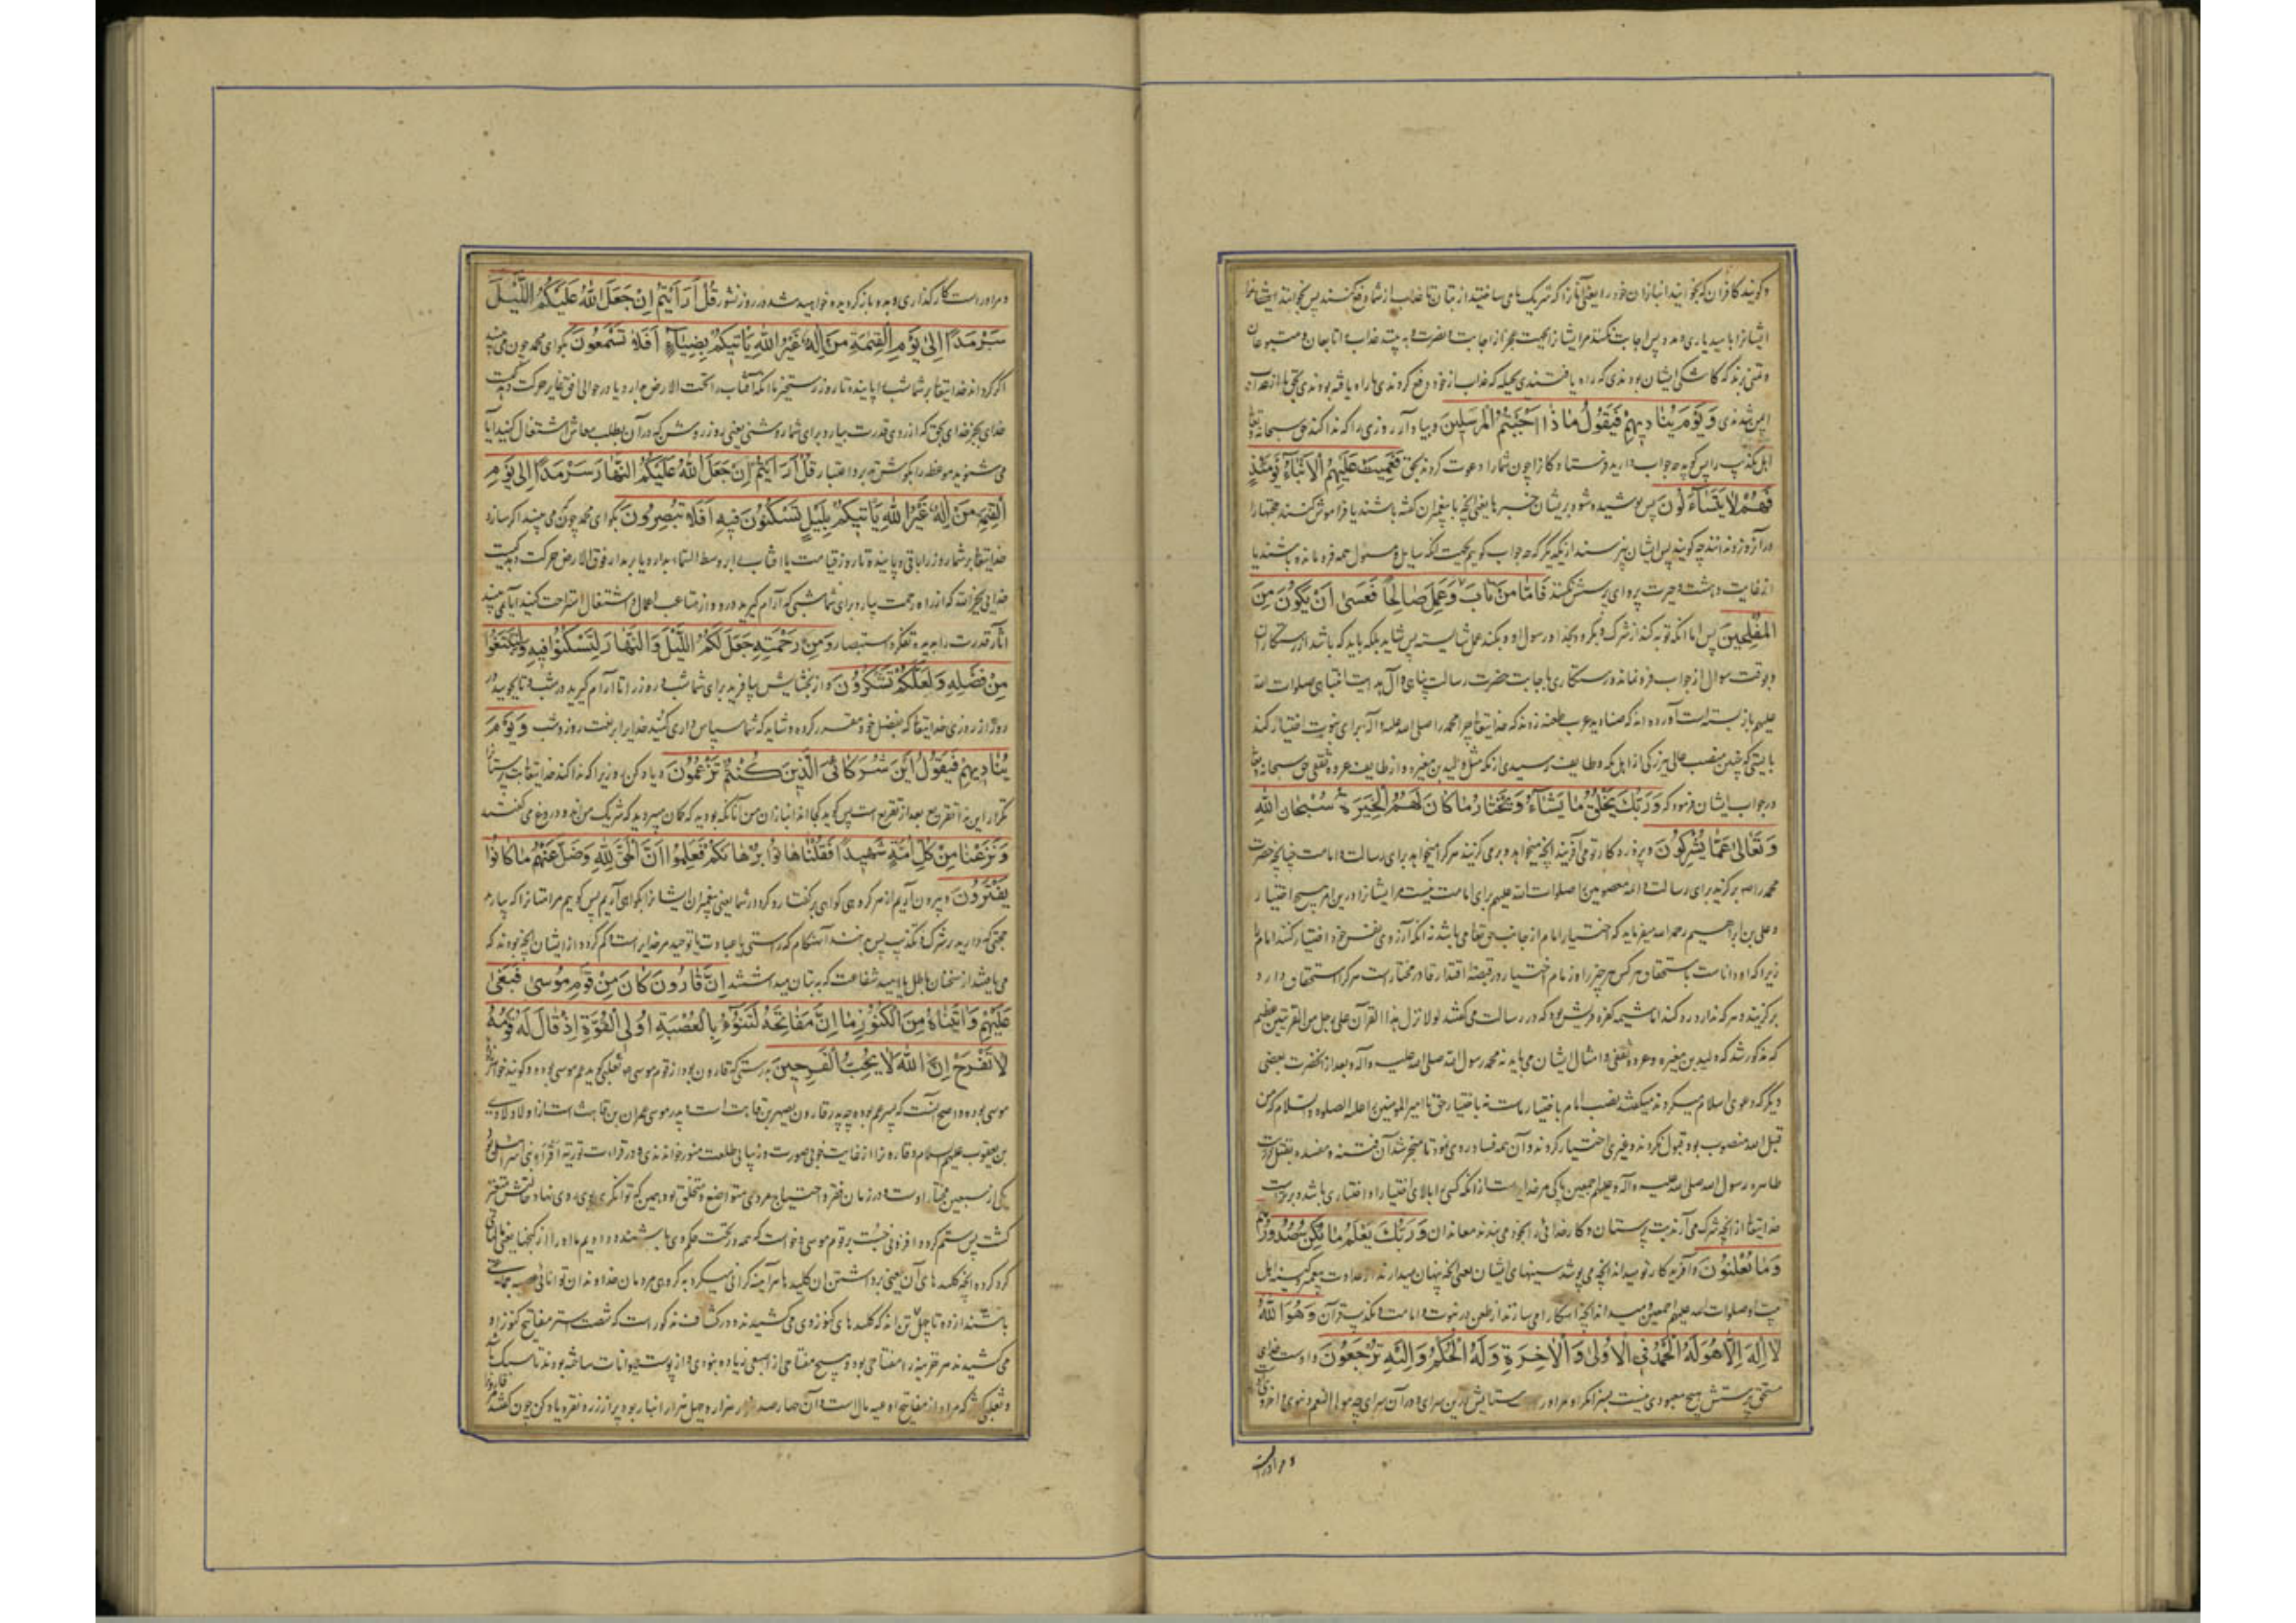 و گویند کافران که بخوانید انبازان خود را یعنی آنها را که شریک می ساختید از بتان تا عذاب از شما دفع کنند پس بخوانند ایشانرا
ایشانرا بامید یاری و مدد پس اجابت نکنند مر ایشانرا بجهت عجز از اجابت و نصرت و به بینند عذاب را تابعان و متبوعان
و تمنی برند که کاشکی ایشان بودندی که راه یافتندی بحیله که عذاب از خود دفع کردندی
ایمن شدندی وَيَوْمَ يُنادِيهِمْ فَيَقُولُ ماذا اَجَبْتُمُ الْمُرْسَلِينَ و بیاد آر روزی را که ندا کند حق سبحانه و تعالی
اهل تکذیب را پس گوید چه جواب دادید فرستادگان را چون شما را دعوت کردند بحق فَعَمِيَتْ عَلَيْهِمُ الْاَنْباءُ يَوْمَئِذٍ
فَهُمْ لا يَتَساءَلُونَ پس پوشیده شود بر ایشان خبرها یعنی آنچه با پیغمبران گفته باشند یا فراموش کنند حجتها را
در آنروز و ندانند چه گویند پس ایشان نپرسند از یکدیگر که چه جواب گوییم بجهت آنکه سایل و مسئول همه فرو مانده باشند یا
از غایت دهشت و حیرت پروای پرسش نکنند فَاَمّا مَنْ تابَ وَعَمِلَ صالِحًا فَعَسى اَنْ يَكُونَ مِنَ
الْمُفْلِحِينَ پس اما آنکه توبه کند از شرک و بگرود بخدا و رسول او و بکند عمل شایسته پس شاید بلکه باید که باشد از رستگاران
و بوقت سوال از جواب فرو نماند و رستگاری باجابت حضرت رسالت پناهی و آل صلوات الله
علیهم باز بسته است آورده اند که صنادید عرب طعنه زدند که خدایتعالی چرا محمد را صلی الله علیه و آله برای نبوت اختیار کند
بایستی که چنین منصب عالی ببزرگی از اهل مکه و طایف رسیدی از مکه مثل ولید بن مغیره و از طایف عروه ثقفی حق سبحانه و تعالی
در جواب ایشان فرمود که وَرَبُّكَ يَخْلُقُ ما يَشاءُ وَيَخْتارُ ما كانَ لَهُمُ الْخِيَرَةُ سُبْحانَ اللهِ
وَتَعالى عَمّا يُشْرِكُونَ و پروردگار تو می آفریند آنچه میخواهد و برمی گزیند هر کرا میخواهد برای رسالت و امامت چنانچه حضرت
محمد را برگزید برای رسالت و ائمه معصومین صلوات الله علیهم برای امامت نیست مر ایشانرا درین امر هیچ اختیار
و علی بن ابراهیم رحمه الله میفرماید که اختیار امام از جانب حق تعالی می باشد نه آنکه آرزوی نفس خود اختیار کنند امام
زیرا که او داناست باستحقاق هر کس هر چیز را و زمام اختیار در قبضه اقتدار قادر مختار است هر کرا استحقاق دارد
برگزیند و هر که ندارد رد کند اما شیمه کفره قریش بود که در رسالت می گفتند لولا نزل هذا القرآن علی رجل من القریتین عظیم
که مذکور شد که ولید بن مغیره و عروه ثقفی و امثال ایشان می باید نه محمد رسول الله صلی الله علیه و آله و بعد از آنحضرت بعضی
دیگر که دعوی اسلام میکردند میگفتند نصب امام باختیار ماست نه باختیار حق تا امیر المومنین علیه الصلوه و السلام که من
قبل الله منصوب بود قبول نکردند و غیری اختیار کردند و آن همه فساد روی نمود تا منجر شد آن فتنه و مفسده بقتل عترت
طاهره رسول الله صلی الله علیه و آله و علیهم اجمعین پاکی مر خدایراست از آنکه کسی را بالای اختیار او اختیاری باشد و برتر است
خدایتعالی از آنچه شرک می آرند بت پرستان وَرَبُّكَ يَعْلَمُ ما تُكِنُّ صُدُورُهُمْ
وَما يُعْلِنُونَ و آفریدگار تو میداند آنچه می پوشد سینهای ایشان یعنی آنچه پنهان میدارند از عداوت پیغمبر و کینه اهل
بیت او صلوات الله علیهم اجمعین و میداند آنچه آشکارا می سازند از طعن در نبوت و امامت و تکذیب قرآن وَهُوَ اللهُ
لا اِلهَ اِلّا هُوَ لَهُ الْحَمْدُ فِي الْاُولى وَالْاخِرَةِ وَلَهُ الْحُكْمُ وَاِلَيْهِ تُرْجَعُونَ و اوست خدای
مستحق پرستش هیچ معبودی نیست بسزا مگر او مر او را ستایش درین سرای و در آن سرای چه مولی النعم دنیوی و اخروی
و مر اوراست
و مر اوراست کار گذاری و بدو باز گردیده خواهید شد در روز نشور قُلْ اَرَاَيْتُمْ اِنْ جَعَلَ اللهُ عَلَيْكُمُ اللَّيْلَ
سَرْمَدًا اِلى يَوْمِ الْقِيمَةِ مَنْ اِلهٌ غَيْرُ اللهِ يَاْتِيكُمْ بِضِياءٍ اَفَلا تَسْمَعُونَ بگو ای محمد چون می بینید
اگر گرداند خدایتعالی بر شما شب را پاینده تا روز رستخیز بآنکه آفتاب را تحت الارض بدارد یا در حوالی افق غایر حرکت دهد کیست
خدای بجز خدای بحق که از روی قدرت بیارد برای شما روشنی یعنی روز روشن که در آن بطلب معاش اشتغال کنید آیا
می شنوید موعظه را بگوش تدبر و اعتبار قُلْ اَرَاَيْتُمْ اِنْ جَعَلَ اللهُ عَلَيْكُمُ النَّهارَ سَرْمَدًا اِلى يَوْمِ
الْقِيمَةِ مَنْ اِلهٌ غَيْرُ اللهِ يَاْتِيكُمْ بِلَيْلٍ تَسْكُنُونَ فِيهِ اَفَلا تُبْصِرُونَ بگو ای محمد چون می بینید اگر سازد
خدایتعالی بر شما روز را باقی و پاینده تا روز قیامت یا آفتاب را در وسط السماء بدارد یا بر مدار فوق الارض حرکت دهد کیست
خدایی بجز الله که از راه رحمت بیارد برای شما شبی که آرام گیرید درو و از متاعب اعمال و اشتغال استراحت کنید آیا نمی بینید
آثار قدرت را بدیده تفکر و استبصار وَمِنْ رَحْمَتِهِ جَعَلَ لَكُمُ اللَّيْلَ وَالنَّهارَ لِتَسْكُنُوا فِيهِ وَلِتَبْتَغُوا
مِنْ فَضْلِهِ وَلَعَلَّكُمْ تَشْكُرُونَ و از بخشایش بیافرید برای شما شب و روز را تا آرام گیرید در شب و تا بجویید در
روز از روزی خدایتعالی که بفضل خود مقرر کرده و شاید که شما سپاس داری کنید خدایرا بر نعمت روز و شب وَيَوْمَ
يُنادِيهِمْ فَيَقُولُ اَيْنَ شُرَكائِيَ الَّذِينَ كُنْتُمْ تَزْعُمُونَ و یاد کن روزیرا که ندا کند خدایتعالی بت پرستانرا
تکرار این ندا تقریع بعد از تقریع است پس گوید کجا اند انبازان من آنانکه بودید که گمان میبردید که شریک من اند و دروغ می گفتید
وَنَزَعْنا مِنْ كُلِّ اُمَّةٍ شَهِيدًا فَقُلْنا هاتُوا بُرْهانَكُمْ فَعَلِمُوا اَنَّ الْحَقَّ لِلّهِ وَضَلَّ عَنْهُمْ ما كانُوا
يَفْتَرُونَ و بیرون آریم از هر گروهی گواهی بر گفتار و کردار شما یعنی پیغمبران ایشانرا بگواهی آریم پس گوییم مر امتانرا که بیارید
حجتی که دارید بر شرک و تکذیب پس بدانند آن هنگام که راستی یا عبادت یا توحید مر خدایراست و گم گردد از ایشان آنچه بودند که
می بافتند از سخنان باطل یا امید شفاعت که به بتان میداشتند اِنَّ قارُونَ كانَ مِنْ قَوْمِ مُوسى فَبَغى
عَلَيْهِمْ وَاتَيْناهُ مِنَ الْكُنُوزِ ما اِنَّ مَفاتِحَهُ لَتَنُوءُ بِالْعُصْبَةِ اُولِي الْقُوَّةِ اِذْ قالَ لَهُ قَوْمُهُ
لا تَفْرَحْ اِنَّ اللهَ لا يُحِبُّ الْفَرِحِينَ بدرستی که قارون بود از قوم موسی ثعلبی گوید عم موسی بوده و گویند خواهرزاده
موسی بوده و اصح آنست که پسر عم بوده چه پدر قارون یصهر بن قاهث است و پدر موسی عمران بن قاهث است از اولاد لاوی
بن یعقوب علیهم السلام و قارون را از غایت خوبی صورت و زیبایی طلعت منور خواندندی و در قرائت توریة اقرا بنی اسرائیل بود
یکی از سبعین مختار اوست و در زمان فقر و احتیاج مردی متواضع و متخلق بود و همین که توانگری بوی روی نهاد حالتش متغیر
گشت پس ستم کرد و افزونی جست بر قوم موسی و خواست که همه در تحت حکم وی باشند و داده بودیم ما او را از گنجها یعنی مالهای
گرد کرده آنچه کلیدهای آن یعنی برداشتن آن کلیدها هر آینه گرانی میکرد به گروهی مردمان خداوندان توانایی عصبه جماعتی
باشند از ده تا چهل تن اند که کلیدهای کنوز وی می کشیدند و در کشاف مذکور است که شصت استر مفاتیح کنوز او
می کشیدند هر خزینه را مفتاحی بود و هیچ مفتاحی از اصبعی زیاده نبودی و از پوست حیوانات ساخته بودند تا سبک باشد
و ثعلبی گفته که مراد از مفاتیح اوعیه مال است و آن چهار صد هزار و چهل هزار انبار بود پر از زر و نقره یاد کن چون گفتند قارونرا